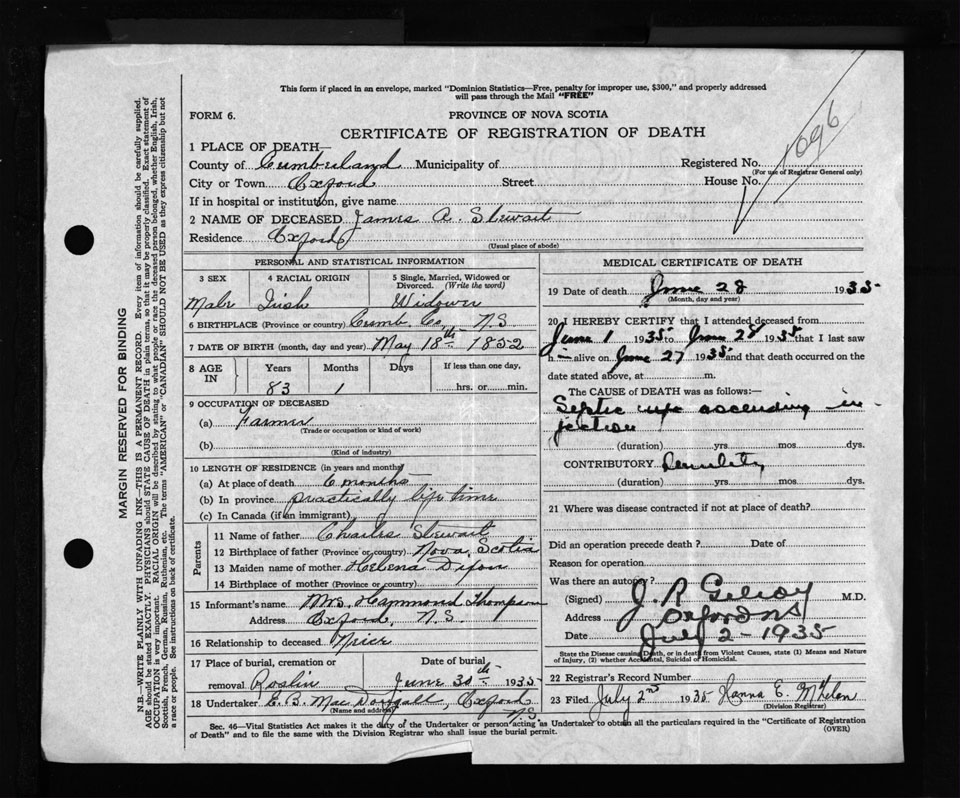 This form if placed in an envelope, marked "Dominion Statistics—Free, penalty for improper use, $300," and properly addressed
will pass through the Mail "FREE"
FORM 6.
PROVINCE OF NOVA SCOTIA
1096
CERTIFICATE OF REGISTRATION OF DEATH
1 PLACE OF DEATH—
County of Cumberland Municipality of Registered No.
(For use of Registrar General only)
City or Town Oxford Street House No.
If in hospital or institution, give name
2 NAME OF DECEASED James A. Stewart
Residence Oxford
(Usual place of abode)
PERSONAL AND STATISTICAL INFORMATION
3 SEX 4 RACIAL ORIGIN 5 Single, Married, Widowed or
Divorced. (Write the word)
Male Irish Widower
6 BIRTHPLACE (Province or country) Cumb. Co., N.S
7 DATE OF BIRTH (month, day and year) May 18th 1852
8 AGE IN Years Months Days If less than one day,
83 1 hrs. or min.
9 OCCUPATION OF DECEASED
(a) Farmer
(Trade or occupation or kind of work)
(b)
(Kind of industry)
10 LENGTH OF RESIDENCE (in years and months)
(a) At place of death 6 months
(b) In province practically life time
(c) In Canada (if an immigrant)
Parents
11 Name of father Charles Stewart
12 Birthplace of father (Province or country) Nova Scotia
13 Maiden name of mother Helena Dixon
14 Birthplace of mother (Province or country)
15 Informant's name Mrs. Hammond Thompson
Address Oxford, N.S.
16 Relationship to deceased Niece
17 Place of burial, cremation or Date of burial
removal Roslin June 30th 1935
18 Undertaker E.B. MacDougall, Oxford
(Name and address) N.S
MEDICAL CERTIFICATE OF DEATH
19 Date of death June 28 1935
(Month, day and year)
20 I HEREBY CERTIFY that I attended deceased from
June 1 1935 to June 28 1935 that I last saw
h— alive on June 27 1935 and that death occurred on the
date stated above, at m.
The CAUSE of DEATH was as follows:—
Septic ascending in-
fection
(duration) yrs mos. dys.
CONTRIBUTORY Senility
(duration) yrs mos. dys.
21 Where was disease contracted if not at place of death?
Did an operation precede death? Date of
Reason for operation
Was there an autopsy?
(Signed) J. R Gilroy M.D.
Address Oxford NS
Date July 2 - 1935
State the Disease causing Death, or in death from Violent Causes, state (1) Means and Nature
of Injury, (2) whether Accidental, Suicidal or Homicidal.
22 Registrar's Record Number
23 Filed July 2nd 1935 Hanna E.
(Division Registrar)
Sec. 46—Vital Statistics Act makes it the duty of the Undertaker or person acting as Undertaker to obtain all the particulars required in the "Certificate of Registration
of Death" and to file the same with the Division Registrar who shall issue the burial permit. (OVER)
MARGIN RESERVED FOR BINDING
N.B.—WRITE PLAINLY WITH UNFADING INK—THIS IS A PERMANENT RECORD. Every item of information should be carefully supplied.
AGE should be stated EXACTLY. PHYSICIANS should STATE CAUSE OF DEATH in plain terms, so that it may be properly classified. Exact statement of
OCCUPATION is very important. RACIAL ORIGIN will be described by stating to what people or race the deceased person belonged, whether English, Irish,
Scottish, French, German, Russian, Ruthenian, etc. The terms "AMERICAN" or "CANADIAN" SHOULD NOT BE USED as they express citizenship but not
a race or people. See instructions on back of certificate.